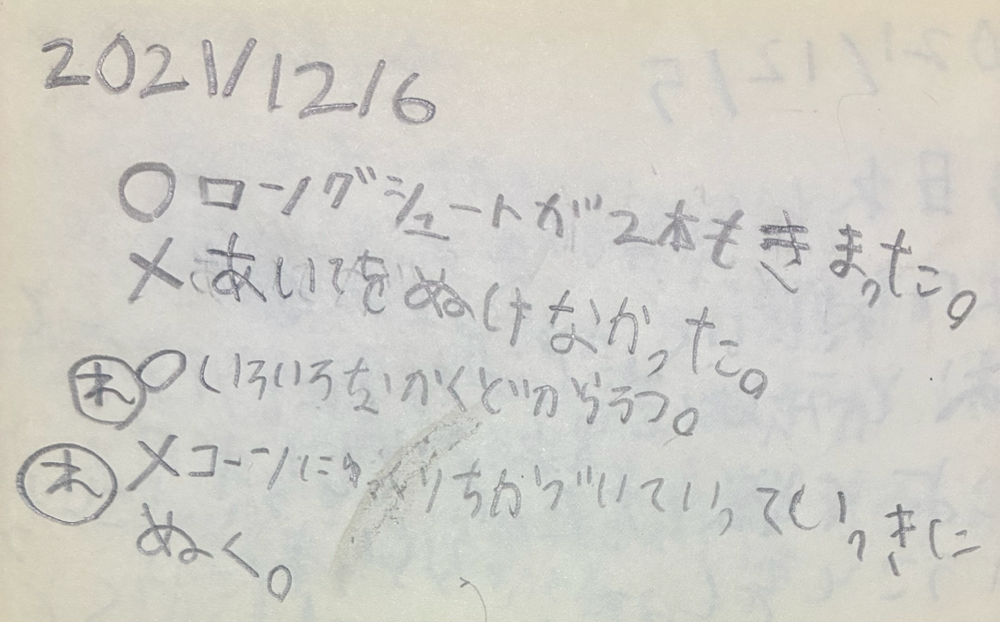 2021/12/6
○ロングシュートが2本もきまった。
×あいてをぬけなかった。
㋭○いろいろなかくどからうつ。
㋭×コーンに りちかづいていっていっきに
ぬく。